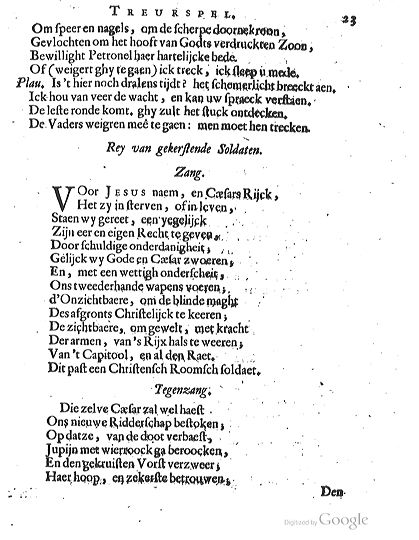 TREURSPEL. 23
Om speer en nagels, om de scherpe doornekroon,
Gevlochten om het hooft van Godts verdruckten Zoon,
Bewillight Petronel haer hartelijcke bede.
Of (weigert ghy te gaen) ick treck, ick sleep u mede.
Plau. Is 't hier noch dralens tijdt? het schemerlicht breeckt aen.
Ick hou van veer de wacht, en kan uw spraeck verstaen.
De leste ronde komt. ghy zult het stuck ontdecken.
De Vaders weigren meê te gaen: men moet hen trecken.
Rey van gekerstende Soldaten.
Zang.
VOor JESUS naem, en Cæsars Rijck,
Het zy in sterven, of in leven,
Staen wy gereet, een yegelijck
Zijn eer en eigen Recht te geven,
Door schuldige onderdanigheit,
Gelijck wy Gode en Cæsar zwoeren;
En, met een wettigh onderscheit,
Ons tweederhande wapens voeren;
d'Onzichtbaere, om de blinde maght
Des afgronts Christelijck te keeren;
De zichtbaere, om gewelt, met kracht
Der armen, van 's Rijx hals te weeren;
Van 't Capitool, en al den Raet.
Dit past een Christensch Roomsch soldaet.
Tegenzang.
Die zelve Cæsar zal wel haest
Ons nieuwe Ridderschap bestoken;
Op datze, van de doot verbaest,
Jupijn met wieroock ga beroocken,
En den gekruisten Vorst verzweer;
Haer hoop, en zekerste betrouwen;
Den
Digitized by Google